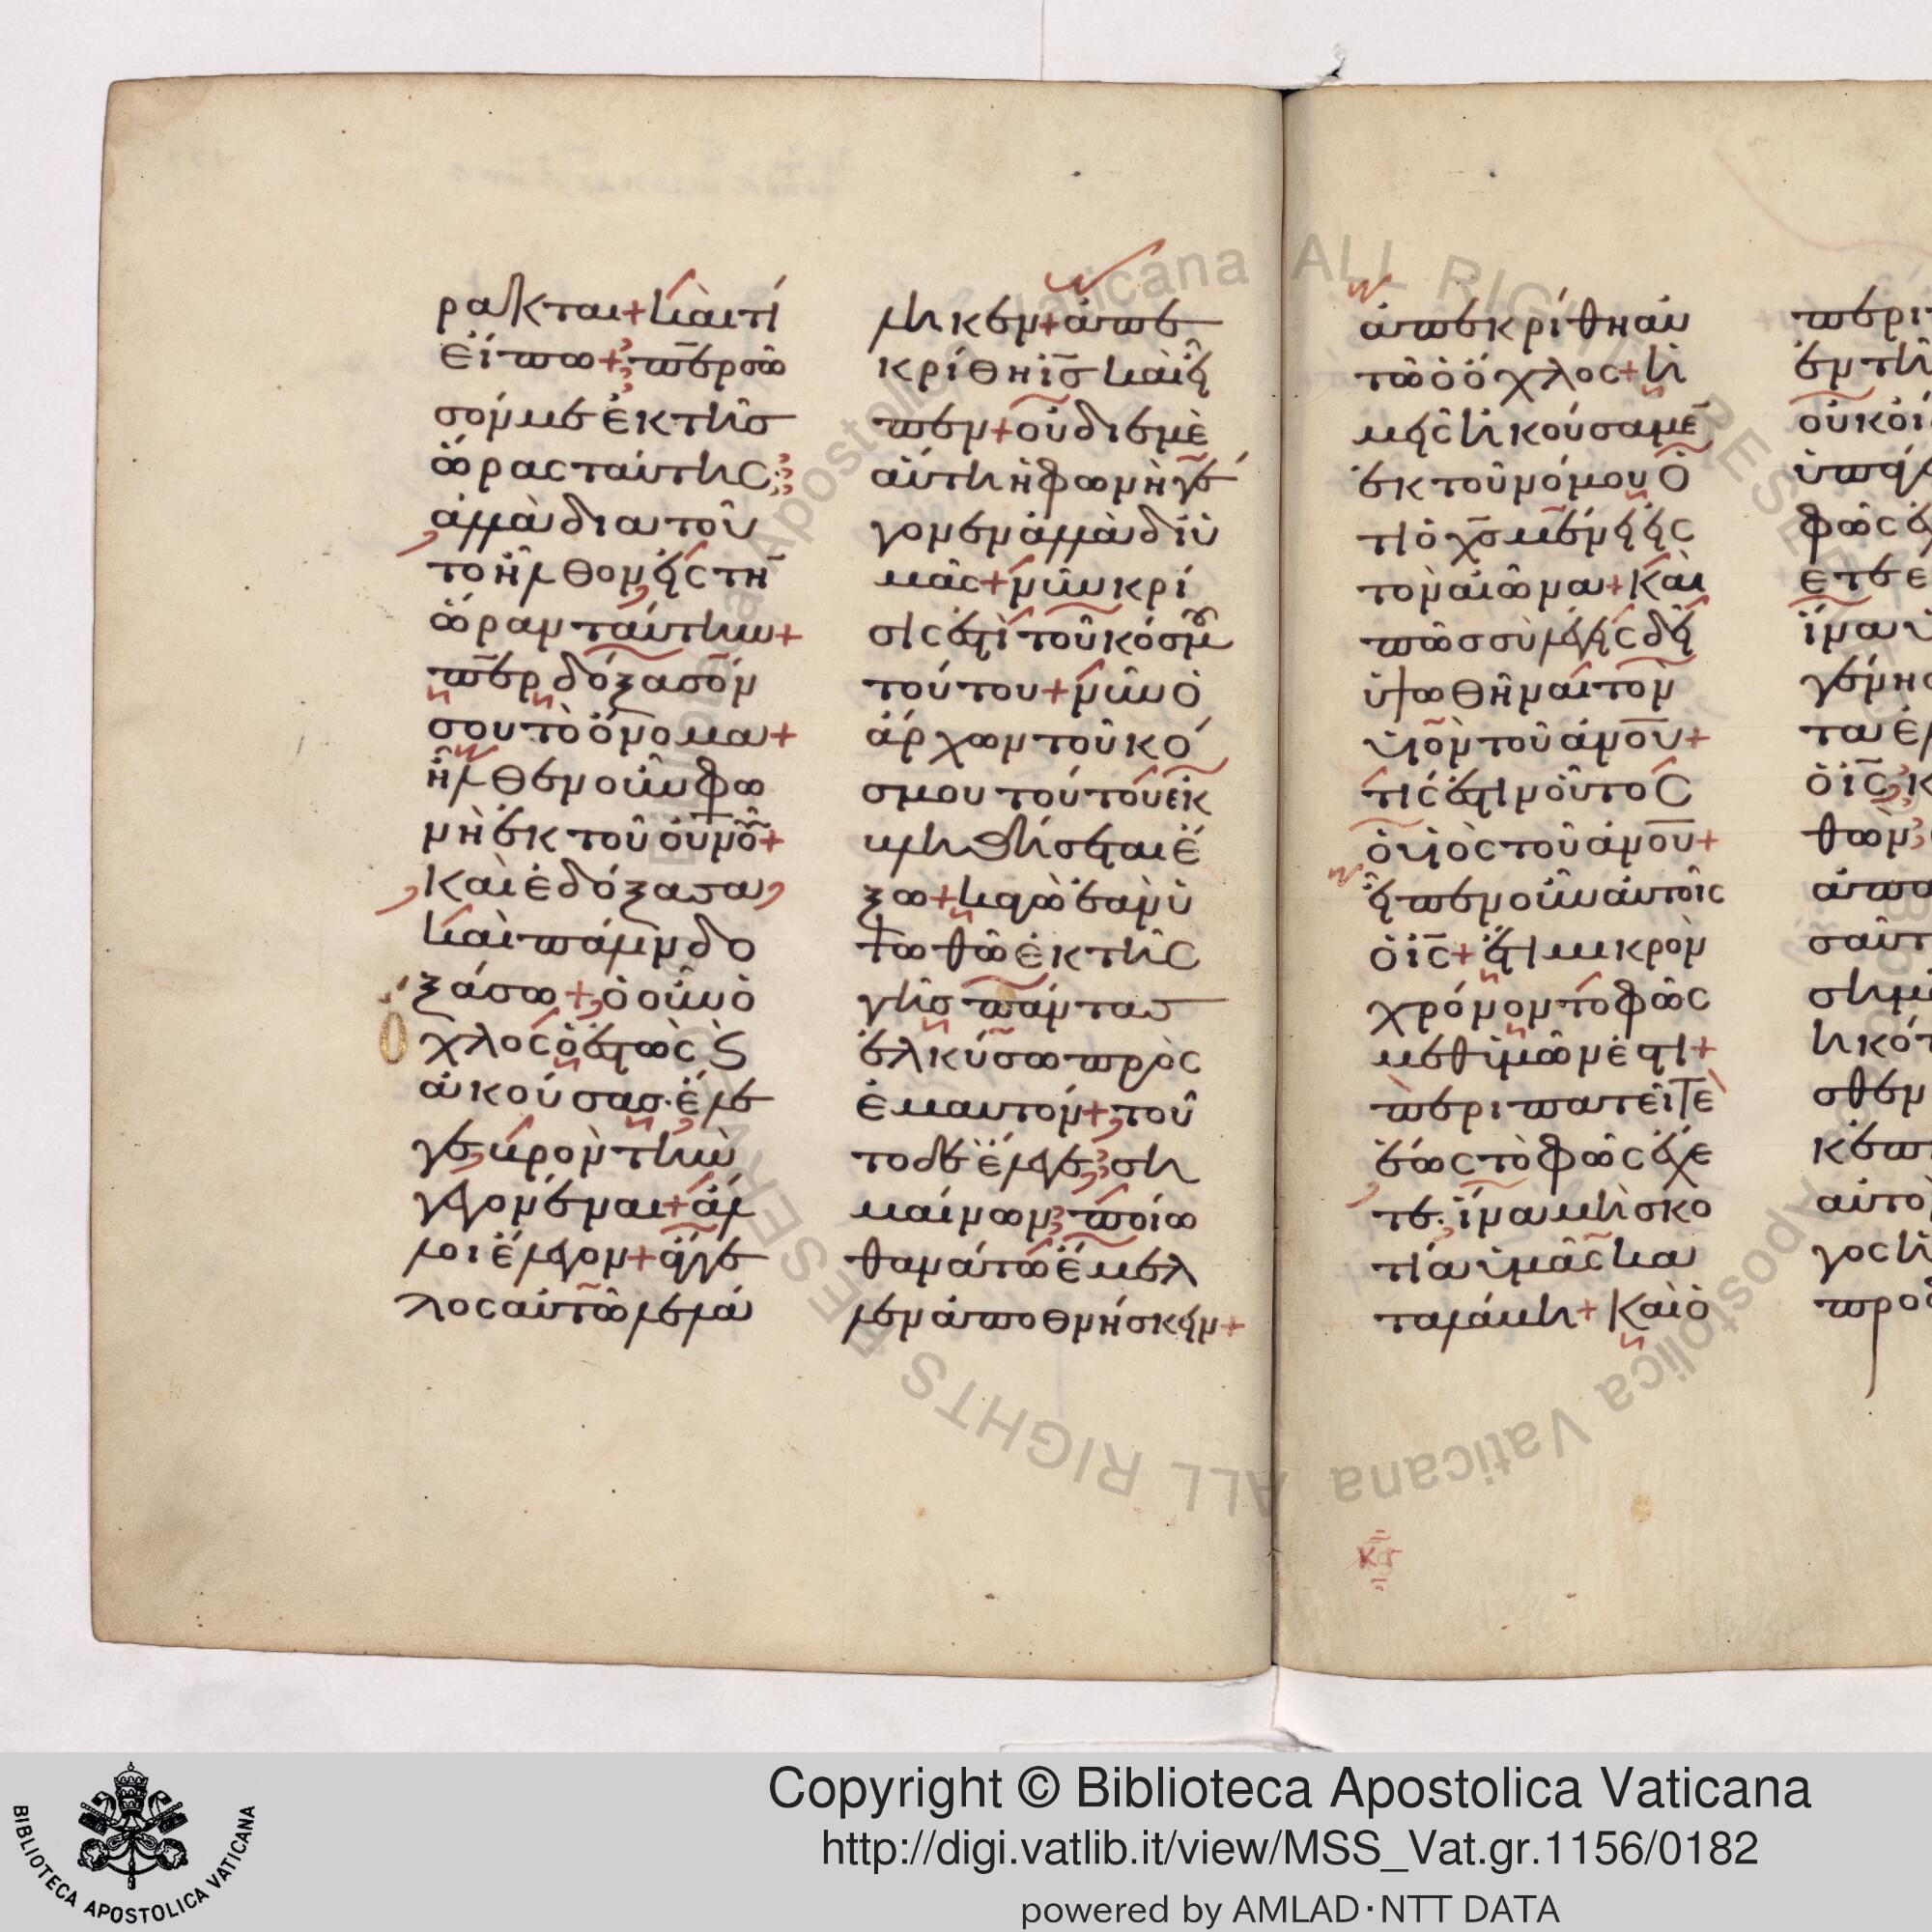 ρακται + και τί
εἴπω + περ σῶ
σόν με ἐκ τῆς
ὥρας ταύτης
ἀλλὰ δια τοῦ
το ἦλθον εἰς τὴ̄
ὥραν ταύτην +
περ δόξασόν
σου τὸ ὄνομα +
ἦλθεν οὖν φω
νὴ ἐκ τοῦ οὐνοῦ +
Και ἐδόξασα
και πάλιν δο
ξάσω + ὁ οὖν ὁ
χλος ὁ ἑστὼς ϗ
ἀκούσας· ἔλε
γε βροντὴν
γεγονέναι + ἄλ
λοι ἔλεγον + ἄγγε
λος αὐτῶ λελά
ληκεν + ἀπε
κρίθη ὁ ις και εἶ
πεν + οὐ δι ἐμὲ
αὕτη ἡ φωνὴ γέ
γονεν ἀλλὰ δι ὑ
μᾶς + νῦν κρί
σις ἐστὶ τοῦ κόσμου
τούτου + νῦν ὁ
ἄρχων τοῦ κό
σμου τούτου ἐκ
βληθήσεται ἔ
ξω + καγὼ ἐὰν ὑ
ψωθῶ ἐκ τῆς
γῆς πάντας
ἑλκύσω πρὸς
ἐμαυτόν + τοῦ
το δὲ ἔλεγε ση
μαίνων ποίω
θανάτω ἔμελ
λεν ἀποθνήσκειν +
ἀπεκρίθη αὐ
τῶ ὁ ὄχλος + ἡ
μεῖς ἠκούσαμε̄
ἐκ τοῦ νόμου ὅ
τι ὁ χς μένει εἰς
τὸν αἰῶνα + Και
πῶς σὺ λέγεις δεῖ
ὑψωθῆναι τὸν
υἱὸν τοῦ ανου +
τίς ἐστιν οὗτος
ὁ υἱὸς τοῦ ανου +
εἶπεν οὖν αὐτοῖς
ὁ ις + ἔτι μικρὸν
χρόνον το φῶς
μεθ ὑμῶν ἐστι +
περιπατεῖτε
ἕως τὸ φῶς ἔχε
τε· ἵνα μὴ σκο
τία ὑμᾶς κα
ταλάβη + Και ὁ
περι
ἐν τῆ
οὐκ οἶ
ὑπάγ
φῶς
ετε ε
ἵνα υ
γένησ
ὁ ις
θὼν
ἀπο
κότ
σθεν
κέναι
αὐτο
γος
προφ
κς
ALL RIGHTS RESERVED
Biblioteca Apostolica Vaticana
BIBLIOTECA APOSTOLICA VATICANA
Copyright © Biblioteca Apostolica Vaticana
http://digi.vatlib.it/view/MSS_Vat.gr.1156/0182
powered by AMLAD·NTT DATA